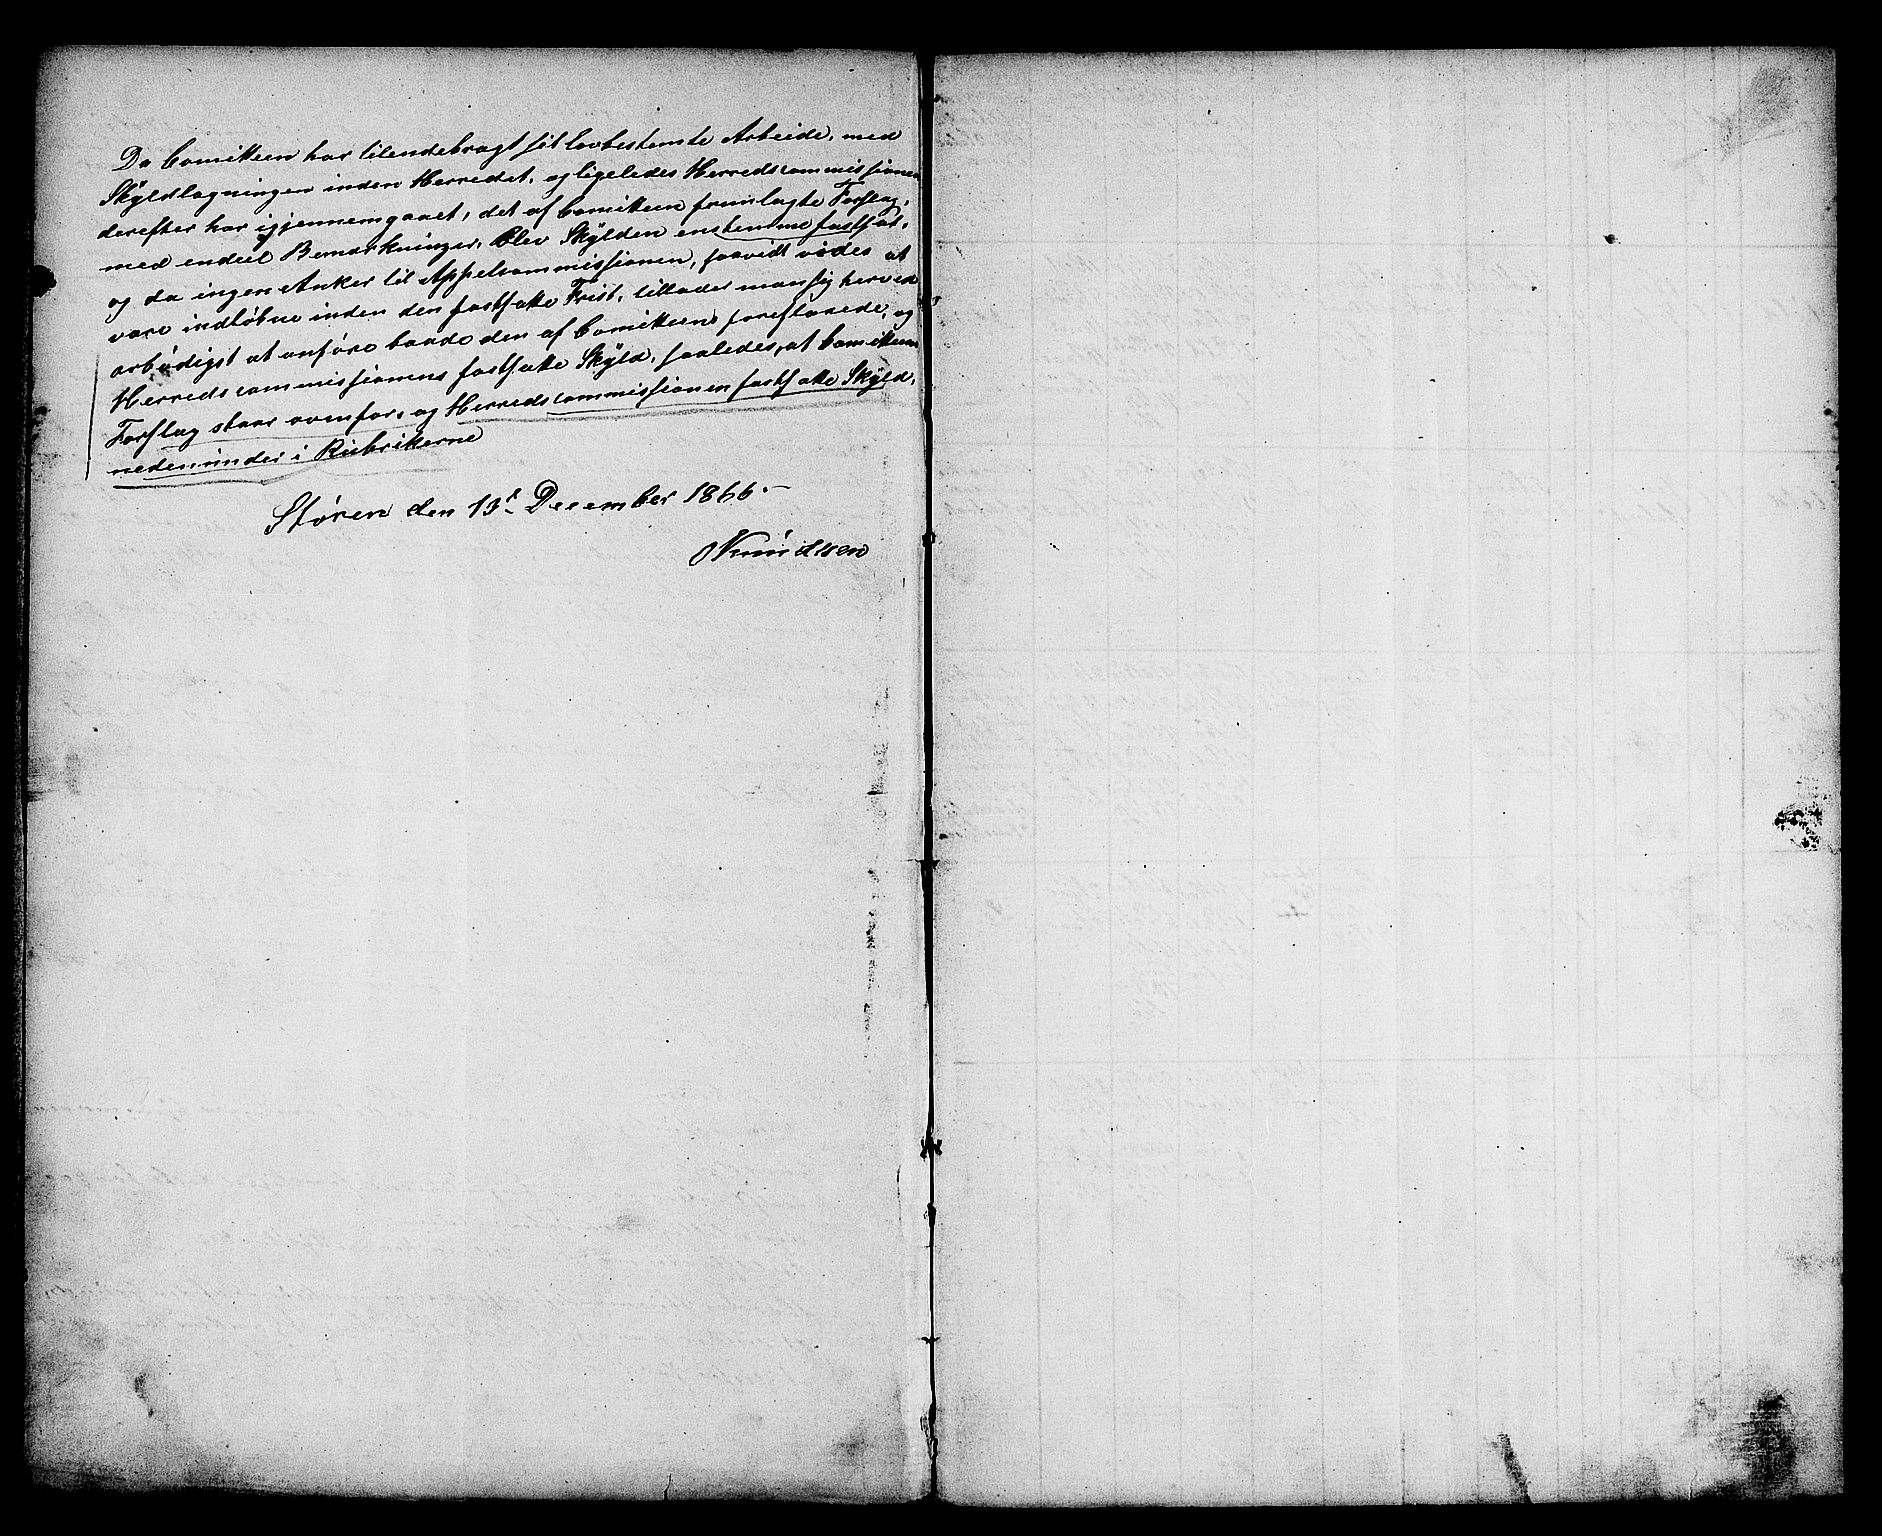 Da Comitteen har tilendebragt sit lovbestemte Arbeide, med
Skÿldlægningen inden Herredet, og ligeledes Herredscommissionen
derefter har igjennemgaaet, det af Comitteen fremlagte Forslag,
med endeel Bemærkninger, blev Skÿlden enstemme fastsat,
og da ingen Anker til Appelcommissionen, saavidt vides at
være indløbne inden den fastsatte Frist, tillader man sig herved
ærbødigst at anføre baade den af Comitteen foreslaaede, og
Herredscommissionens fastsatte Skÿld, saaledes, at Comitteens
Forslag staar ovenfor, og Herredscommissionen fastsatte Skÿld,
nedenunder i Rubrikerne
Støren den 13d December 1866.
Knudsen